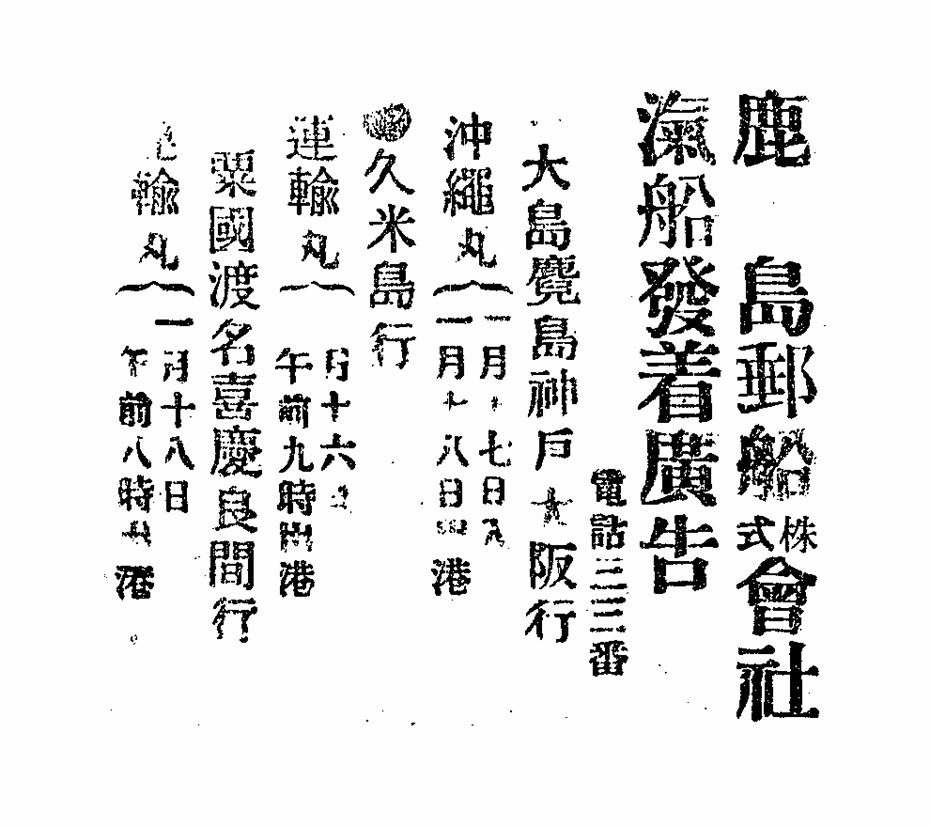 鹿島郵船株式會社
滊船發着廣告
電話三三番
大島麑島神戸大阪行
沖繩丸
一月十七日入
一月十八日出港
久米島行
運輸丸
月十六
午前九時出港
粟國渡名喜慶良間行
輸丸
一月十八日
午前八時出港